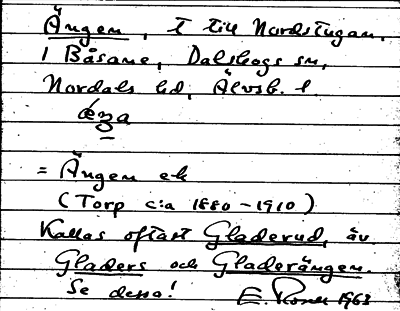 Ängen, t till Nordstugan,
i Båsane, Dalskogs sn,
Nordals hd, Älvsb. l.
ǽŋa
= Ängen ek
(Torp c:a 1880-1910)
Kallas oftast Gladerud, äv.
Gladers och Gladerängen.
Se dessa! E. Rosell 1963